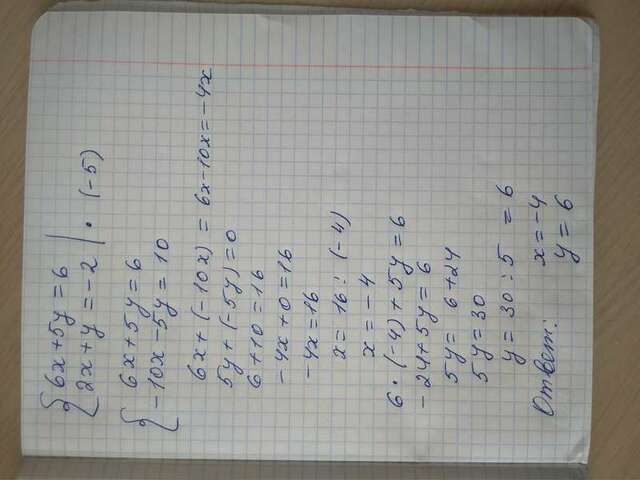 { 6x+5y=6
2x+y=-2 | · (-5)
{ 6x+5y=6
-10x-5y=10
6x+(-10x) = 6x-10x=-4x
5y+(-5y)=0
6+10=16
-4x+0=16
-4x=16
x=16:(-4)
x=-4
6·(-4)+5y=6
-24+5y=6
5y=6+24
5y=30
y=30:5=6
Ответ: x=-4
y=6